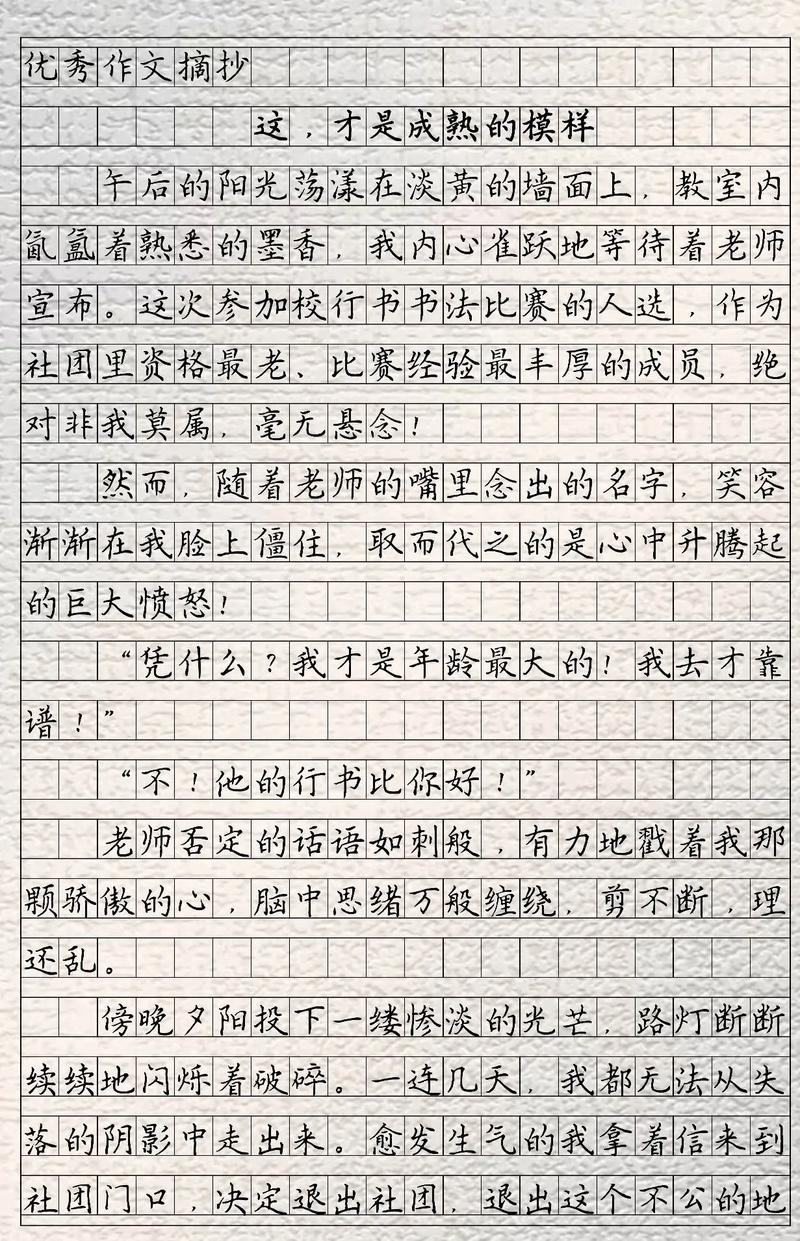 优秀作文摘抄
这，才是成熟的模样
午后的阳光荡漾在淡黄的墙面上，教室内
氤氲着熟悉的墨香，我内心雀跃地等待着老师
宣布。这次参加校行书书法比赛的人选，作为
社团里资格最老、比赛经验最丰厚的成员，绝
对非我莫属，毫无悬念！
然而，随着老师的嘴里念出的名字，笑容
渐渐在我脸上僵住，取而代之的是心中升腾起
的巨大愤怒！
“凭什么？我才是年龄最大的！我去才靠
谱！”
“不！他的行书比你好！”
老师否定的话语如刺般，有力地戳着我那
颗骄傲的心，脑中思绪万般缠绕，剪不断，理
还乱。
傍晚夕阳投下一缕惨淡的光芒，路灯断断
续续地闪烁着破碎。一连几天，我都无法从失
落的阴影中走出来。愈发生气的我拿着信来到
社团门口，决定退出社团，退出这个不公的地